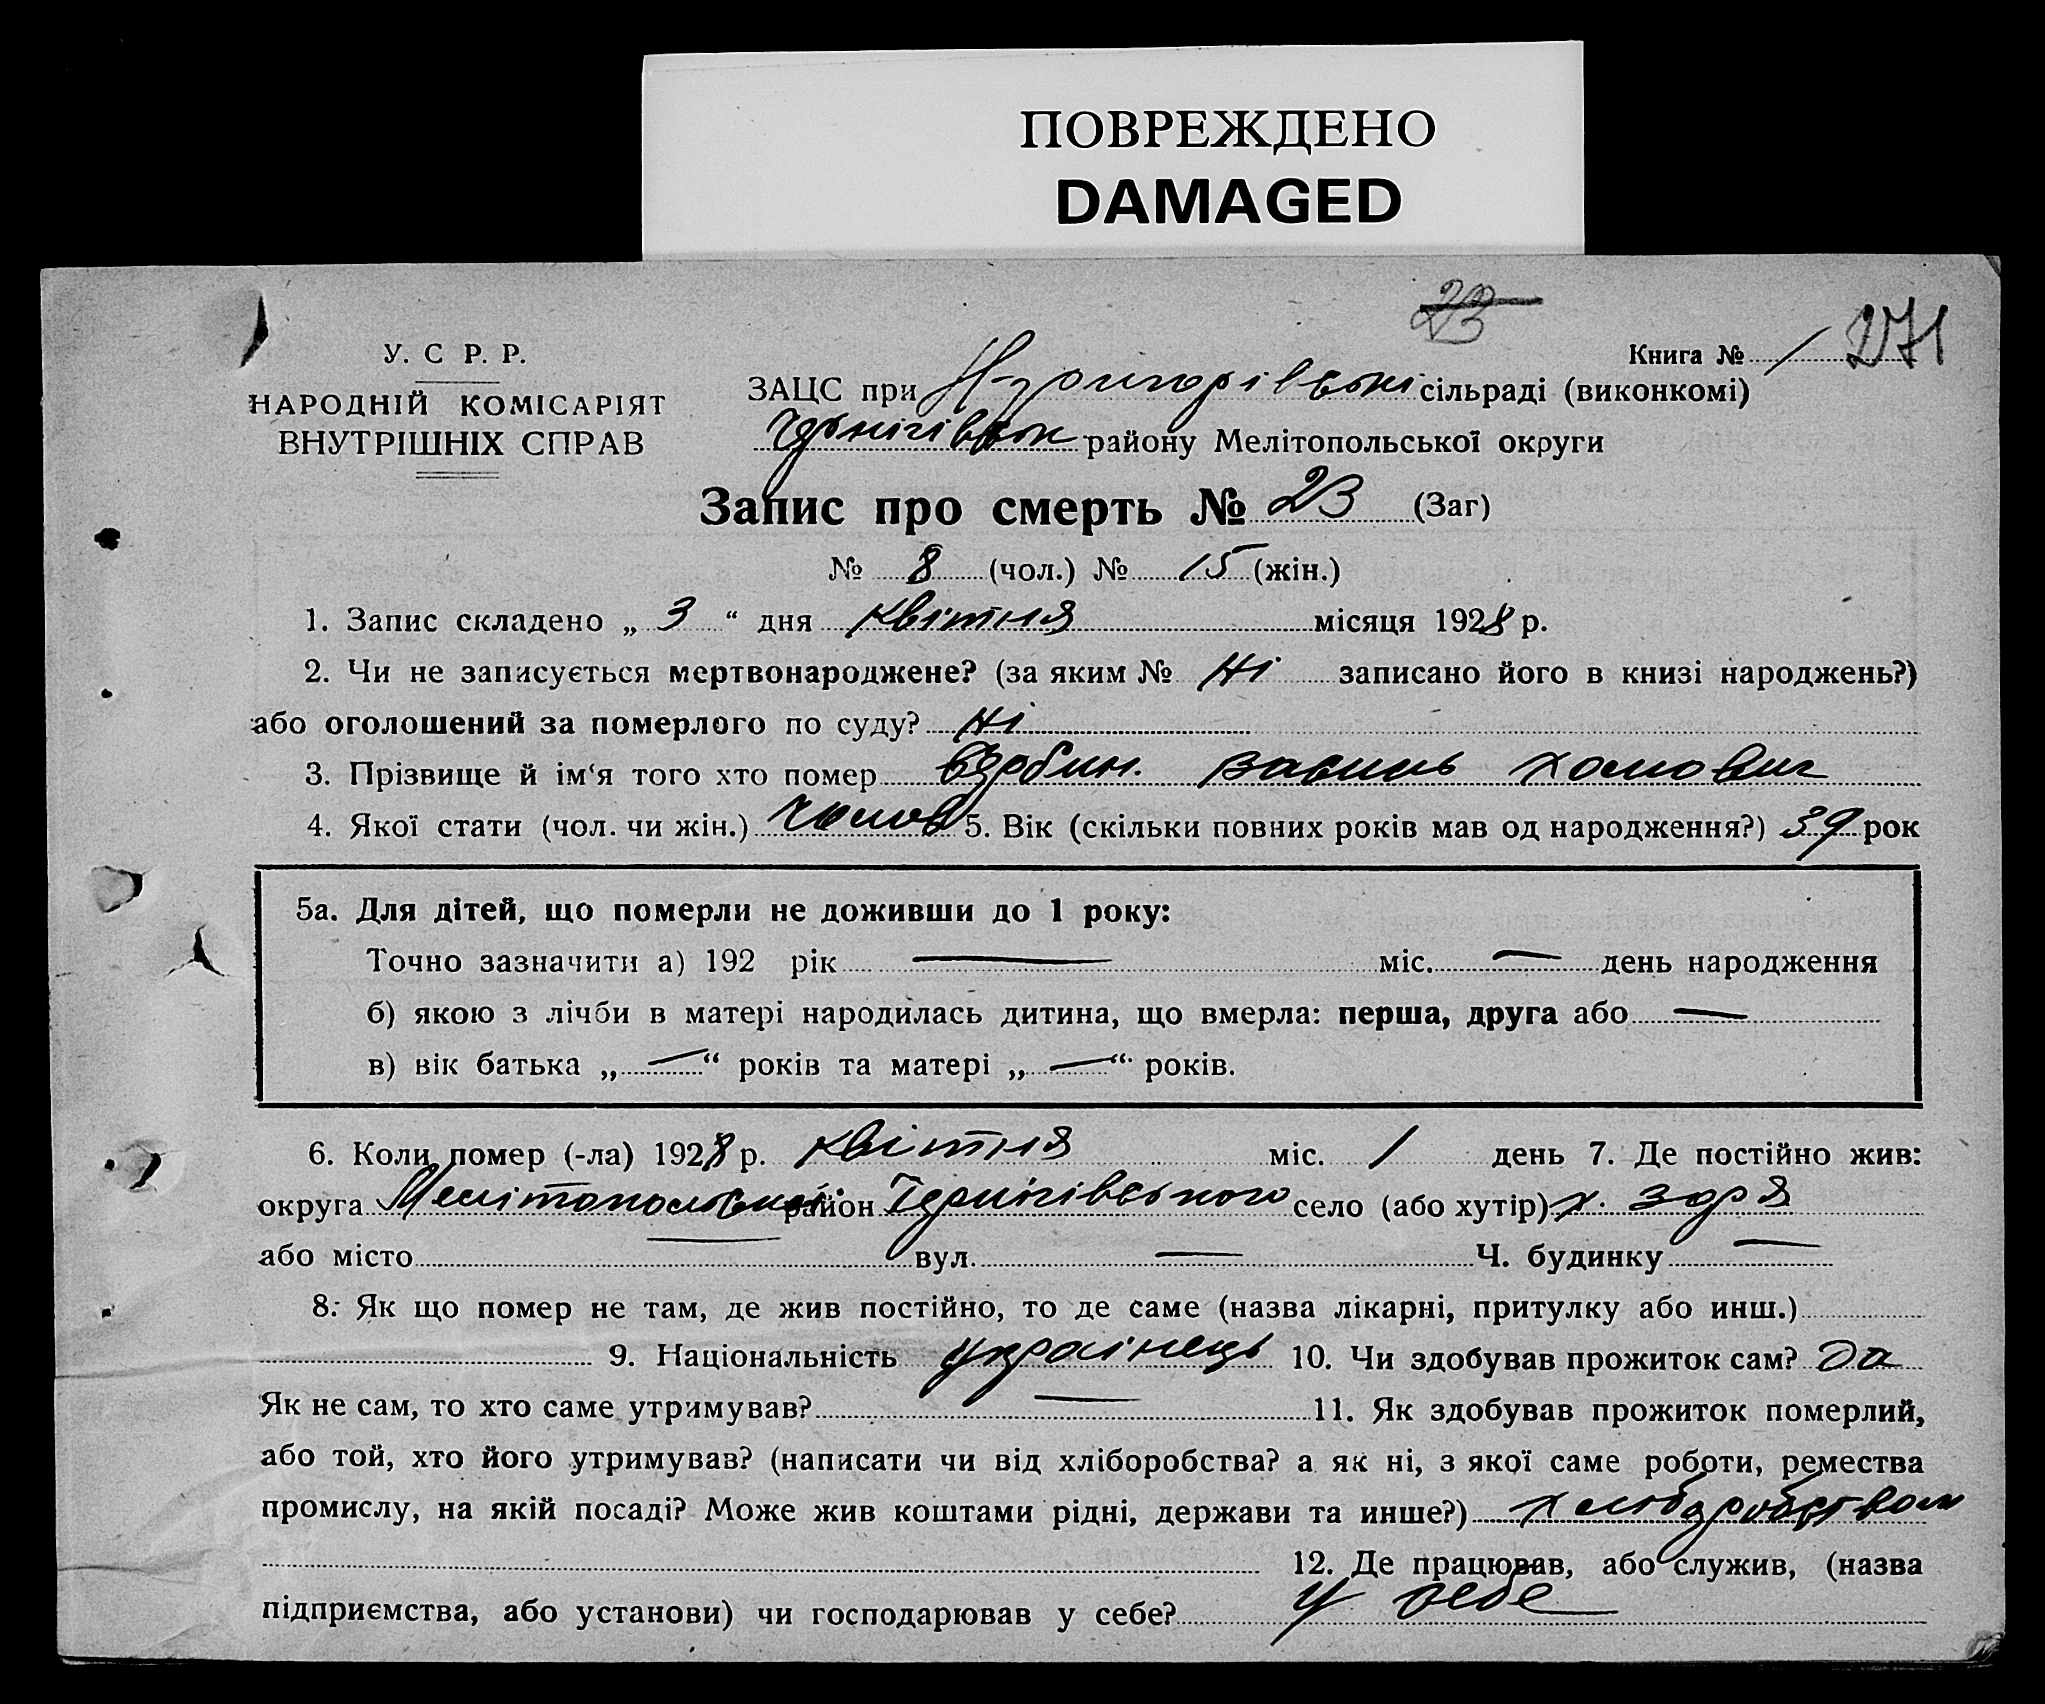 ПОВРЕЖДЕНО
DAMAGED
23
У. С Р. Р.
НАРОДНІЙ КОМІСАРІЯТ
ВНУТРІШНІХ СПРАВ
Книга № 1 271
ЗАЦС при Н-григорівській сільраді (виконкомі)
Чернігівськ району Мелітопольської округи
Запис про смерть № 23 (Заг)
№ 8 (чол.) № 15 (жін.)
1. Запис складено „ 3 “ дня квітня місяця 1928 р.
2. Чи не записується мертвонароджене? (за яким № ні записано його в книзі народжень?)
або оголошений за померлого по суду? ні
3. Прізвище й ім‘я того хто помер Василь Хомович
4. Якої стати (чол. чи жін.) чолов 5. Вік (скільки повних років мав од народження?) 39 рок
5а. Для дітей, що померли не доживши до 1 року:
Точно зазначити а) 192 рік — міс. — день народження
б) якою з лічби в матері народилась дитина, що вмерла: перша, друга або —
в) вік батька „ — “ років та матері „ — “ років.
6. Коли помер (-ла) 1928 р. квітня міс. 1 день 7. Де постійно жив:
округа Мелітопольської район Чернігівського село (або хутір) х. Зоря
або місто — вул. — Ч. будинку —
8. Як що помер не там, де жив постійно, то де саме (назва лікарні, притулку або инш.)
9. Національність українець 10. Чи здобував прожиток сам? да
Як не сам, то хто саме утримував? — 11. Як здобував прожиток померлий,
або той, хто його утримував? (написати чи від хліборобства? а як ні, з якої саме роботи, ремества
промислу, на якій посаді? Може жив коштами рідні, держави та инше?) хліборобством
12. Де працював, або служив, (назва
підприємства, або установи) чи господарював у себе? у себе